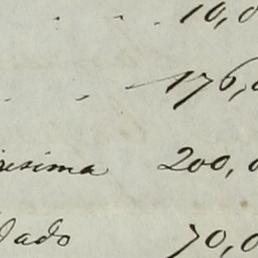 10,0
" " 176,0
resima 200,0
dado 70,0